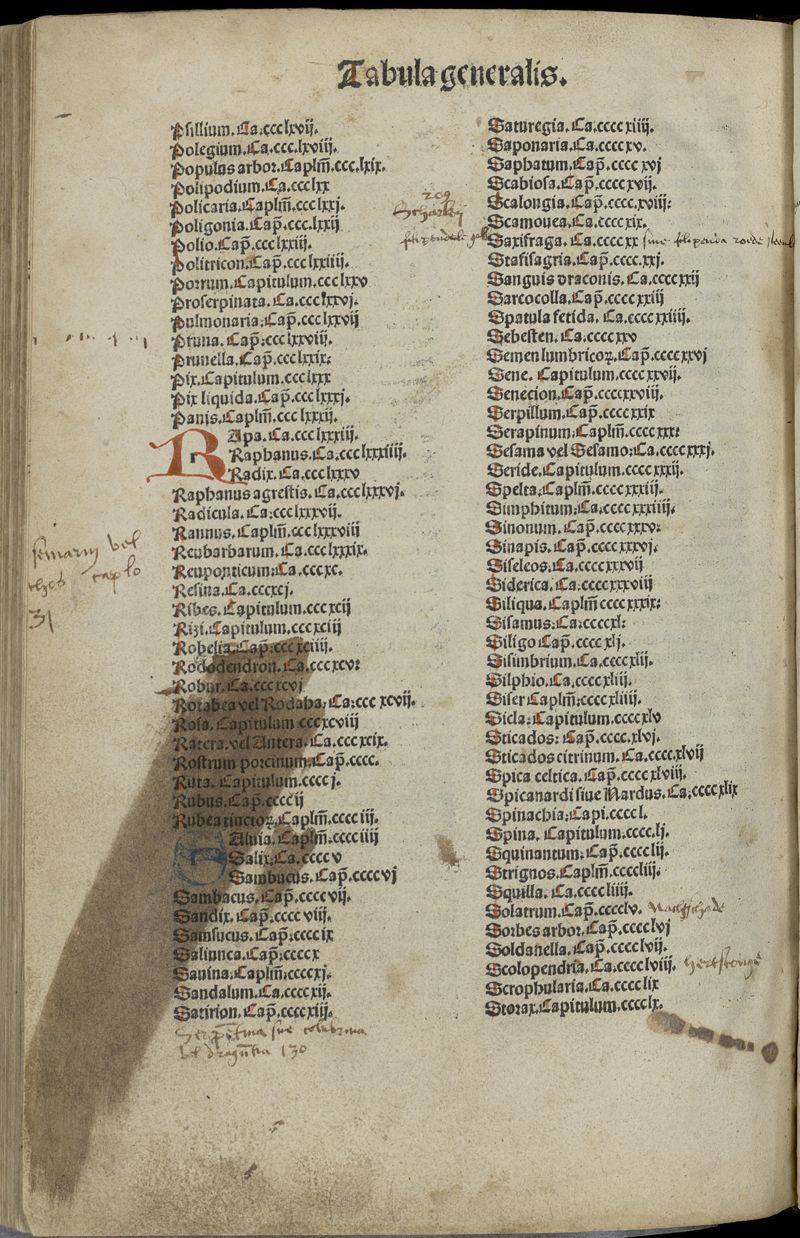 Tabula generalis.
Psillium. Ca. ccclxvij.
Polegium. Ca. ccc.lxviij.
Populus arbor. Caplm̄. ccc.lxix.
Polipodium. Ca. ccclxx
Policaria. Caplm̄. ccclxxj.
Poligonia. Cap̄. ccc.lxxij
Polio. Cap̄. ccclxxiij.
Politricon. Cap̄. ccclxxiiij.
Porrum. Capitulum. ccclxxv
Proserpinata. Ca. ccclxxvj.
Pulmonaria. Cap̄. ccclxxvij
Pruna. Cap̄. ccclxxviij.
Prunella. Cap̄. ccclxxix.
Pix. Capitulum. ccclxxx
Pix liquida. Cap̄. ccclxxxj.
Panis. Caplm̄. ccclxxxij.
RApa. Ca. ccclxxxiij.
Raphanus. Ca. ccclxxxiiij.
Radix. Ca. ccclxxxv
Raphanus agrestis. Ca. ccclxxxvj.
Radicula. Ca. ccclxxxvij.
Rannus. Caplm̄. ccclxxxviij
Reubarbarum. Ca. ccclxxxix.
Reuponticum. Ca. cccxc.
Resina. Ca. cccxcj.
Ribes. Capitulum. cccxcij
Rizi. Capitulum. cccxciij
Robelia. Cap̄. cccxciiij.
Rododendron. Ca. cccxcv:
Robur. Ca. cccxcvj
Rorabea vel Rodaba. Ca: ccc xcvij.
Rosa. Capitulum cccxcviij
Ratera. vel Antera. Ca. cccxcix.
Rostrum porcinum. Cap̄. cccc.
Ruta. Capitulum. cccc j.
Rubus. Cap̄. cccc ij
Rubea tinctoꝝ. Caplm̄. cccc iij.
SAluia. Caplm̄. cccc iiij
Salix. Ca. cccc v
Sambucus. Cap̄. cccc vj
Sambacus. Cap̄. cccc vij.
Sandix. Cap̄. cccc viij.
Samsucus. Cap̄. cccc ix
Saliunca. Cap̄. cccc x
Sauina. Caplm̄. cccc xj.
Sandalum. Ca. cccc xij.
Satirion. Cap̄. cccc xiij.
Serpētina siue colubrina
vel dragūtea 130
semarij vel
caplo
31
209
Saturegia. Ca. cccc xiiij.
Saponaria. Ca. cccc xv.
Saphatum. Cap̄. cccc xvj
Scabiosa. Cap̄. cccc xvij.
Scalongia. Cap̄. cccc.xviij:
Scamonea. Ca. cccc xix.
Saxifraga. Ca. cccc xx siue filipenda
Stafisagria. Cap̄. cccc.xxj.
Sanguis draconis. Ca. cccc xxij
Sarcocolla. Cap̄. cccc xxiij
Spatula fetida. Ca. cccc xxiiij.
Sebesten. Ca. cccc xxv
Semen lumbricoꝝ. Cap̄. cccc xxvj
Sene. Capitulum. cccc xxvij.
Senecion. Cap̄. cccc xxviij.
Serpillum. Cap̄. cccc xxix
Serapinum. Caplm̄. cccc xxx:
Sesama vel Sesamo. Ca. cccc xxxj.
Seride. Capitulum. cccc xxxij.
Spelta. Caplm̄. cccc xxxiij.
Simphitum. Ca. cccc xxxiiij.
Sinonum. Cap̄. cccc xxxv:
Sinapis. Cap̄. cccc xxxvj.
Siseleos. Ca. cccc xxxvij
Siderica. Ca. cccc xxxviij
Siliqua. Caplm̄ cccc xxxix:
Sisamus: Ca. cccc xl:
Siligo Cap̄. cccc xlj.
Sisimbrium. Ca. cccc xlij.
Silphio. Ca. cccc xliij.
Siser Caplm̄: cccc xliiij.
Sicla: Capitulum. cccc xlv
Sticados: Cap̄. cccc.xlvj.
Sticados citrinum. Ca. cccc.xlvij
Spica celtica. Cap̄. cccc xlviij.
Spicanardi siue Nardus. Ca. cccc xlix
Spinachia. Capi. cccc l.
Spina. Capitulum. cccc.lj.
Squinantum. Cap̄. cccc lij.
Strignos. Caplm̄. cccc liij:
Squilla. Ca. cccc liiij.
Solatrum. Cap̄. cccc lv. nachschade
Sorbes arbor. Cap̄. cccc lvj
Soldanella. Cap̄. cccc lvij.
Scolopendria. Ca. cccc lviij. hertstonge
Scrophularia. Ca. cccc lix
Storax. Capitulum. cccc lx.